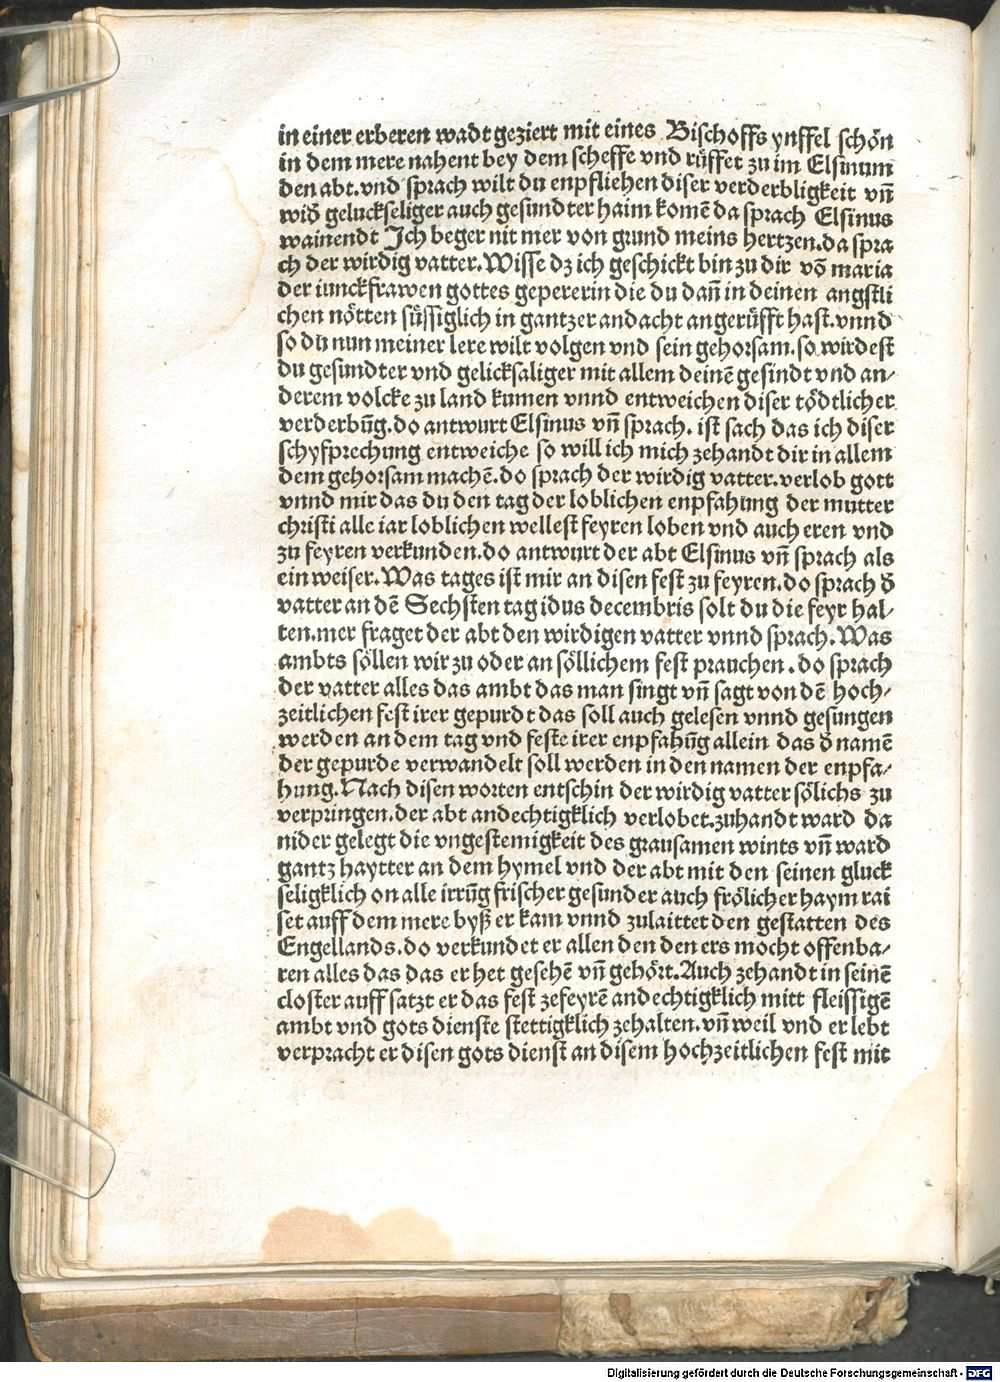 in einer erberen wadt geziert mit eines Bischoffs ynffel schön
in dem mere nahent bey dem scheffe vnd rüffet zu im Elsinum
den abt. vnd sprach wilt du enpfliehen diser verderbligkeit vñ
wid̕ geluckseliger auch gesundter haim komē da sprach Elsinus
wainendt Ich beger nit mer von grund meins hertzen. da spra
ch der wirdig vatter. Wisse dz ich geschickt bin zu dir vō maria
der iunckfrawen gottes gepererin die du dañ in deinen angstli
chen nötten süssiglich in gantzer andacht angerüfft hast. vnnd
so du nun meiner lere wilt volgen vnd sein gehorsam. so wirdest
du gesundter vnd gelicksaliger mit allem deinē gesindt vnd an-
derem volcke zu land kumen vnnd entweichen diser tödtlicher
verderbūg. do antwurt Elsinus vñ sprach. ist sach das ich diser
schyfprechung entweiche so will ich mich zehandt dir in allem
dem gehorsam machē. do sprach der wirdig vatter. verlob gott
vnnd mir das du den tag der loblichen enpfahung der mutter
christi alle iar loblichen wellest feyren loben vnd auch eren vnd
zu feyren verkunden. do antwurt der abt Elsinus vñ sprach als
ein weiser. Was tages ist mir an disen fest zu feyren. do sprach d̕
vatter an dē Sechsten tag idus decembris solt du die feyr hal-
ten. mer fraget der abt den wirdigen vatter vnnd sprach. Was
ambts söllen wir zu oder an söllichem fest prauchen. do sprach
der vatter alles das ambt das man singt vñ sagt von dē hoch-
zeitlichen fest irer gepurdt das soll auch gelesen vnnd gesungen
werden an dem tag vnd feste irer enpfahūg allein das d̕ namē
der gepurde verwandelt soll werden in den namen der enpfa-
hung. Nach disen worten entschin der wirdig vatter sölichs zu
verpringen. der abt andechtigklich verlobet. zuhandt ward da
nider gelegt die vngestemigkeit des grausamen wints vñ ward
gantz haytter an dem hymel vnd der abt mit den seinen gluck
seligklich on alle irrūg frischer gesunder auch frölicher haym rai
set auff dem mere byß er kam vnnd zulaittet den gestatten des
Engellands. do verkundet er allen den den ers mocht offenba-
ren alles das das er het gesehē vñ gehört. Auch zehandt in seinē
closter auff satzt er das fest zefeyrē andechtigklich mitt fleissigē
ambt vnd gots dienste stettigklich zehalten. vñ weil vnd er lebt
verpracht er disen gots dienst an disem hochzeitlichen fest mit
Digitalisierung gefördert durch die Deutsche Forschungsgemeinschaft - DFG